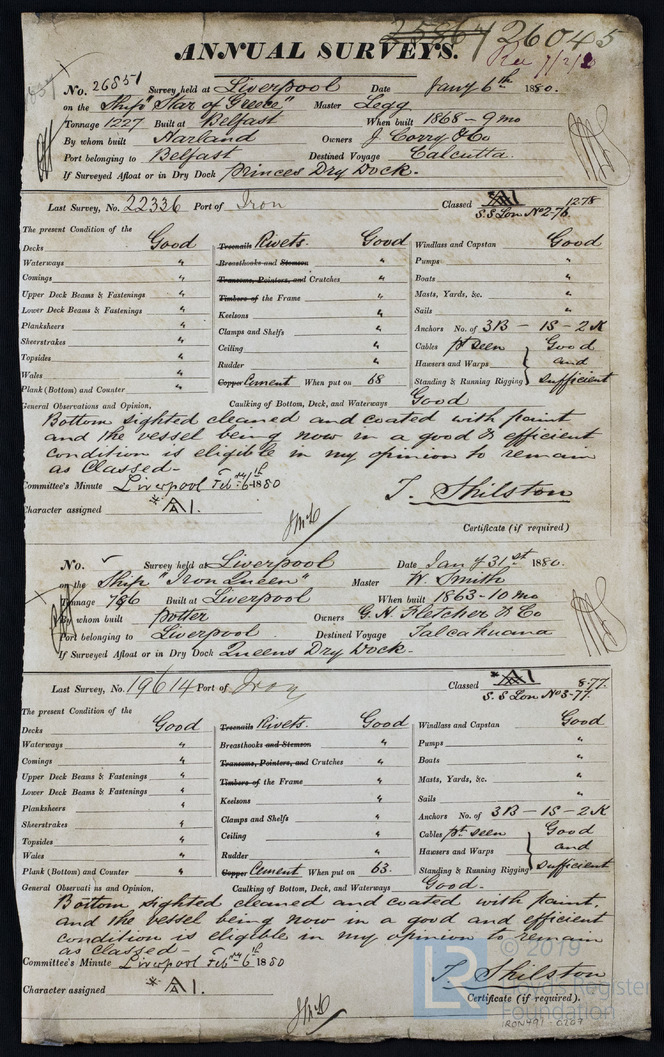 25864 26045
ANNUAL SURVEYS. Rec 7/2/80
No. 26851 Survey held at Liverpool Date Jany 6th 1880.
on the Ship "Star of Greece" Master Legg
Tonnage 1227 Built at Belfast When built 1868 - 9 mo
By whom built Harland Owners J. Corry & Co
Port belonging to Belfast Destined Voyage Calcutta.
If Surveyed Afloat or in Dry Dock Princes Dry Dock.
Last Survey, No. 22336 Port of Iron Classed A1 12.78
S.S Lon No 2-76.
The present Condition of the
Decks Good Treenails Rivets. Good Windlass and Capstan Good
Waterways " Breasthooks and Stemson " Pumps "
Comings " Transoms, Pointers, and Crutches " Boats "
Upper Deck Beams & Fastenings " Timbers of the Frame " Masts, Yards, &c. "
Lower Deck Beams & Fastenings " Keelsons " Sails "
Planksheers " Clamps and Shelfs " Anchors No. of 3B - 1S - 2K
Sheerstrakes " Ceiling " Cables pt seen Good
Topsides " Rudder " Hawsers and Warps and
Wales " Copper Cement When put on 68 Standing & Running Rigging Sufficient
Plank (Bottom) and Counter "
General Observations and Opinion, Caulking of Bottom, Deck, and Waterways Good
Bottom sighted cleaned and coated with paint
and the vessel being now in a good & efficient
condition is eligible in my opinion to remain
as Classed-
Committee's Minute Liverpool Feby 6th 1880
Character assigned A1. T. Shilston
Certificate (if required)
No. Survey held at Liverpool Date Jany 31st 1880.
on the Ship "Iron Queen" Master W. Smith
Tonnage 796 Built at Liverpool When built 1863-10 mo
By whom built Potter Owners G.H. Fletcher & Co
Port belonging to Liverpool Destined Voyage Talcahuana
If Surveyed Afloat or in Dry Dock Queens Dry Dock.
Last Survey, No. 19614 Port of Iron Classed A1 8.77.
S.S Lon No 3-77.
The present Condition of the
Decks Good Treenails Rivets. Good Windlass and Capstan Good
Waterways " Breasthooks and Stemson " Pumps "
Comings " Transoms, Pointers, and Crutches " Boats "
Upper Deck Beams & Fastenings " Timbers of the Frame " Masts, Yards, &c. "
Lower Deck Beams & Fastenings " Keelsons " Sails "
Planksheers " Clamps and Shelfs " Anchors No. of 3B - 1S - 2K
Sheerstrakes " Ceiling " Cables pt seen Good
Topsides " Rudder " Hawsers and Warps and
Wales " Copper Cement When put on 63. Standing & Running Rigging Sufficient
Plank (Bottom) and Counter "
General Observations and Opinion, Caulking of Bottom, Deck, and Waterways Good.
Bottom sighted cleaned and coated with paint.
and the vessel being now in a good and efficient
condition is eligible in my opinion to remain
as classed-
Committee's Minute Liverpool Feby 6th 1880
Character assigned A1. T. Shilston
Certificate (if required).
LR © 2019
Lloyd's Register
Foundation
IRON491-0207